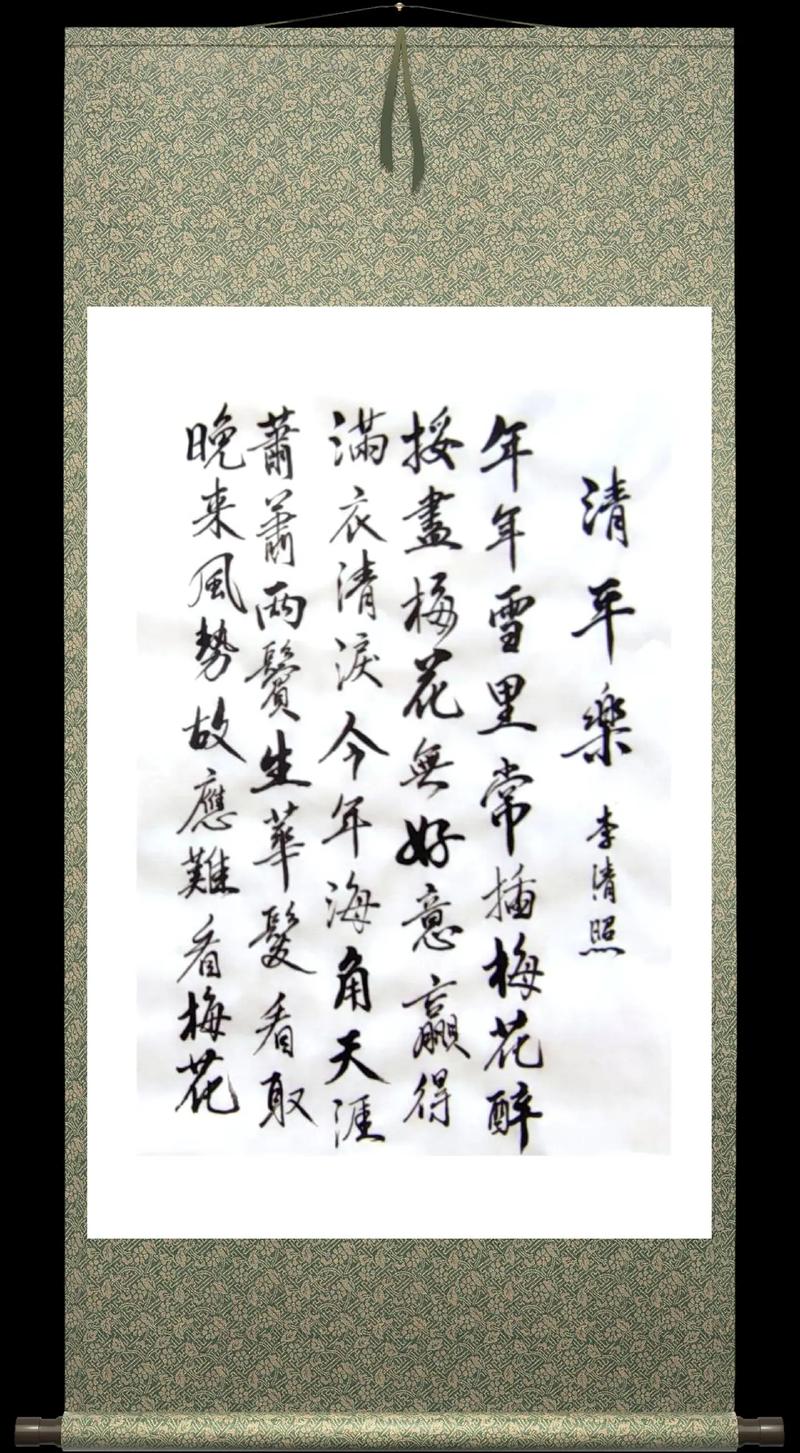 清平樂 李清照
年年雪里常插梅花醉
挼盡梅花無好意贏得
滿衣清淚今年海角天涯
蕭蕭兩鬢生華髮看取
晚来風勢故應難看梅花